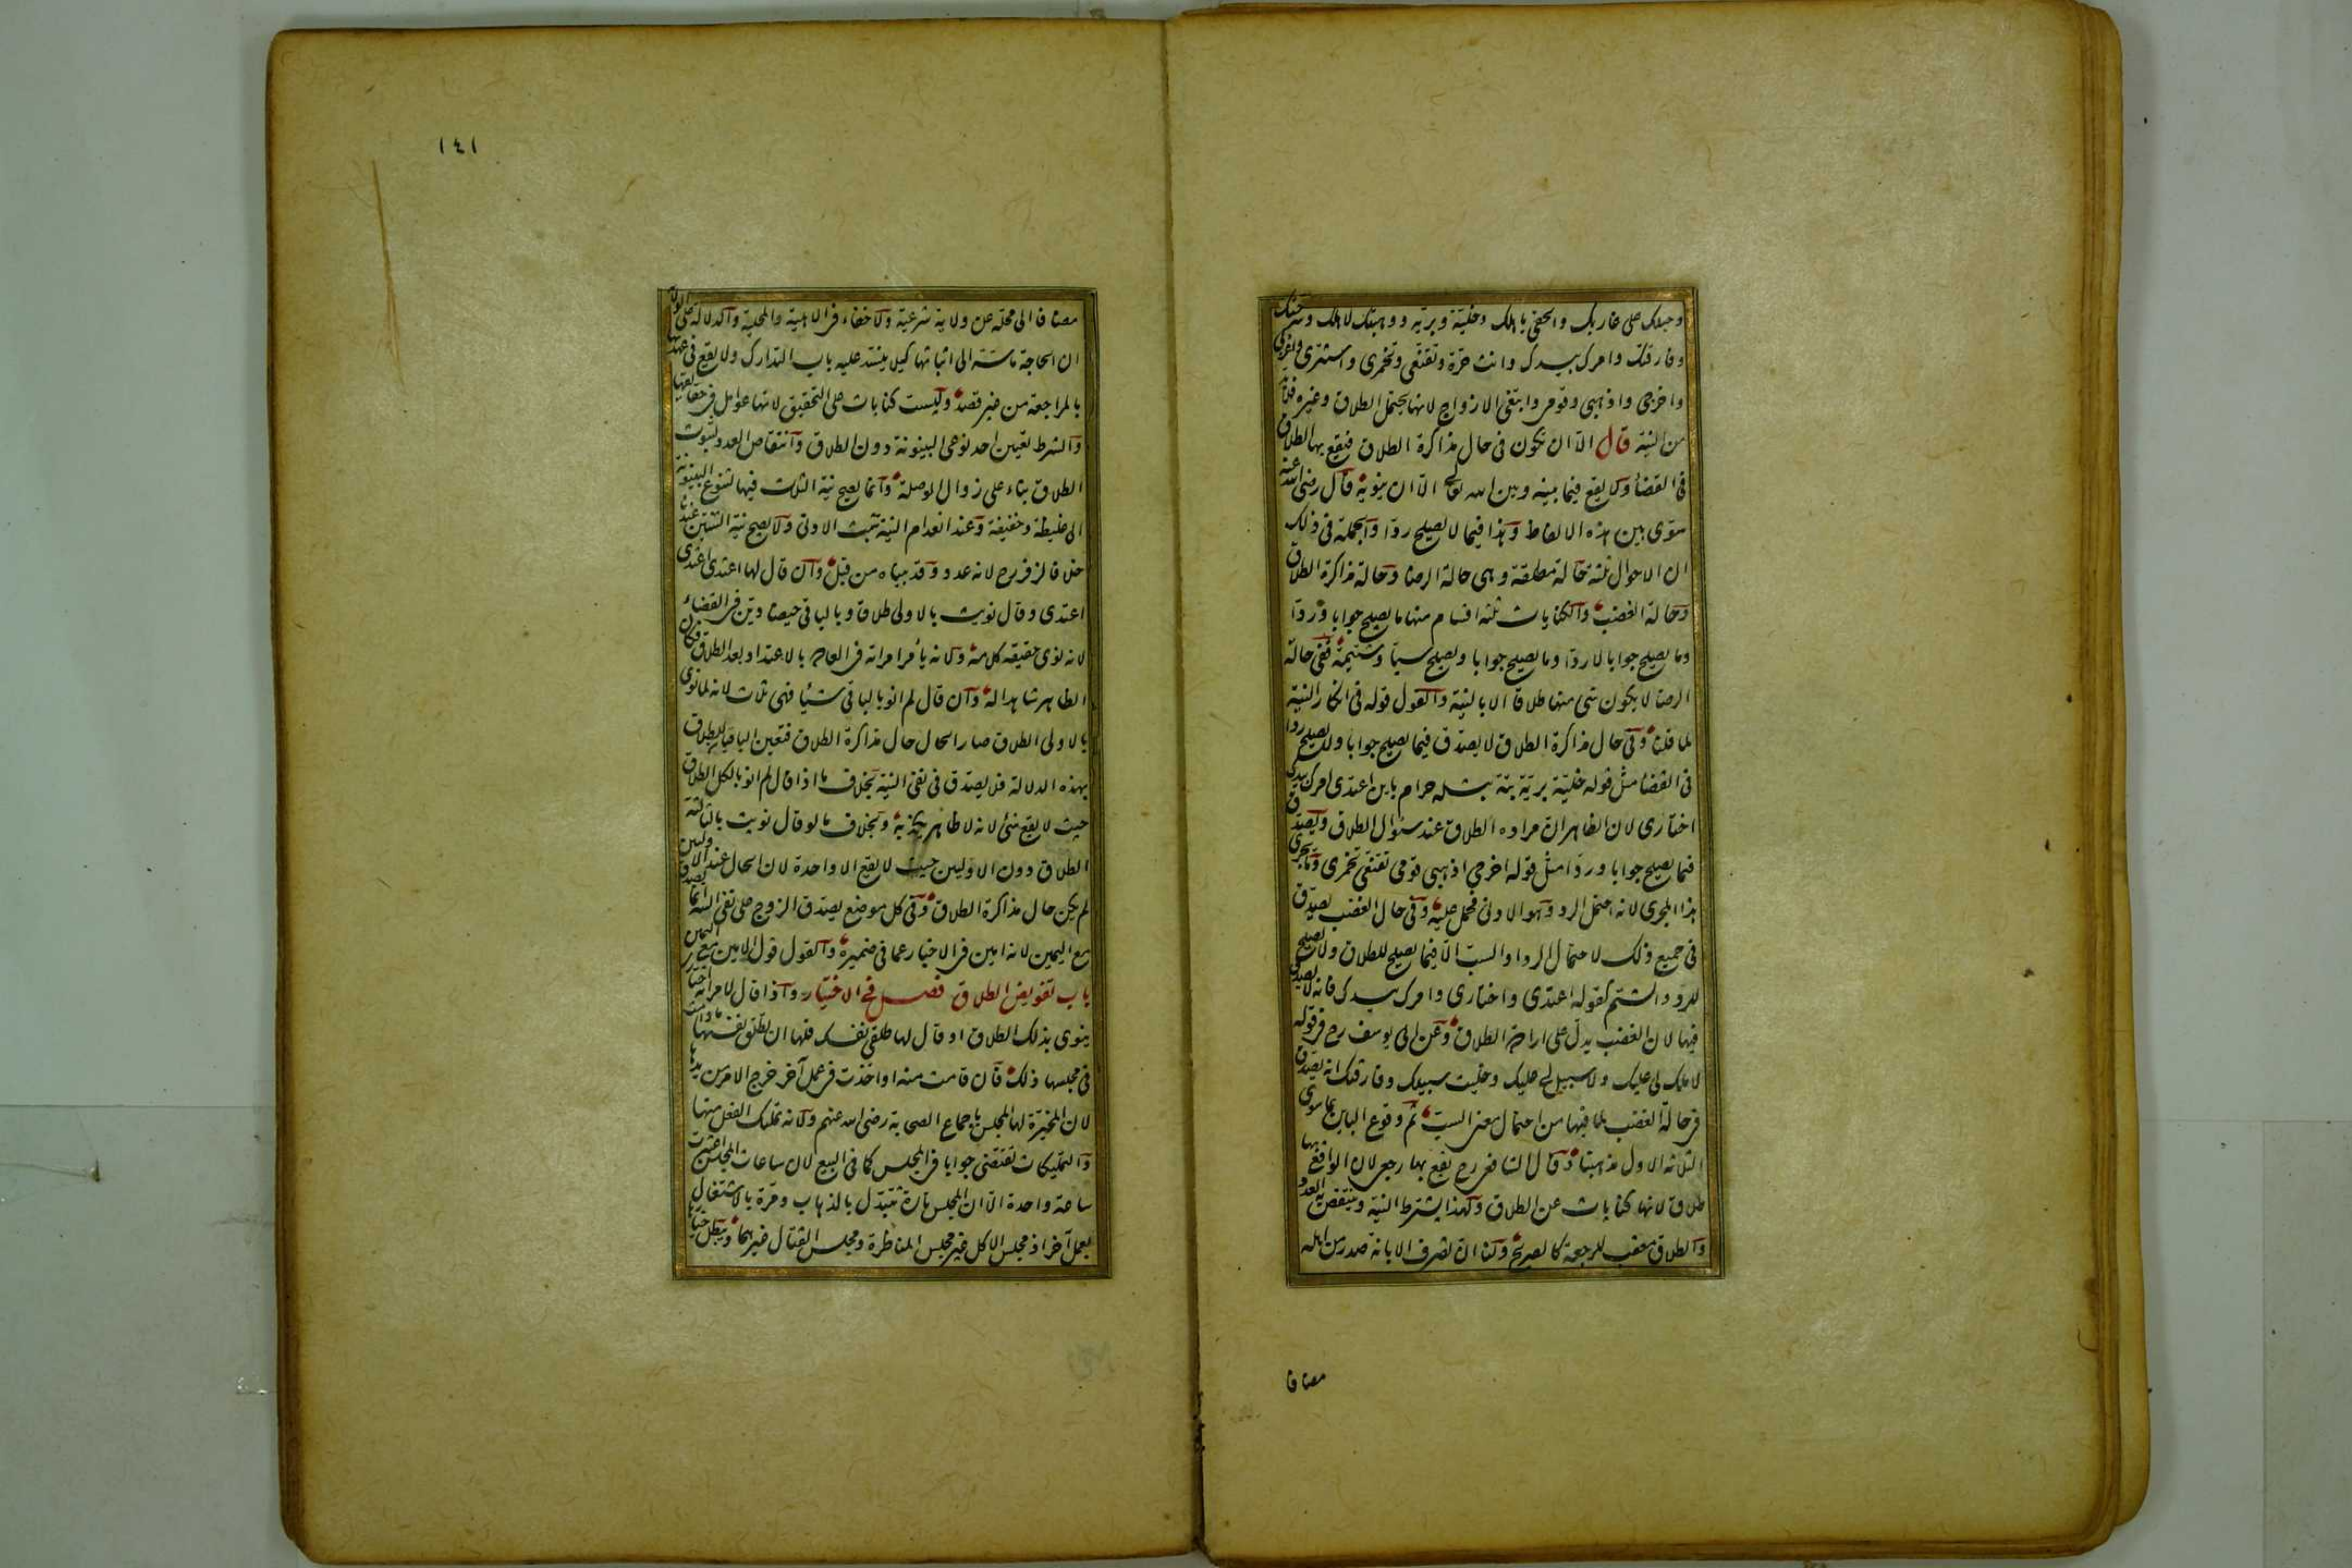 وحبلك على غاربك والحقى باهلك وخلية وبرية ووهبتك لاهلك وسرحتك
وفارقتك وامرك بيدك وانت حرة وتقنعى وتخمرى واستترى واغربى
واخرجى واذهبى وقومى وابتغى الازواج لانها يحتمل الطلاق وغيره فلابد
من النية قال الا ان تكون فى حال مذاكرة الطلاق فيقع بها الطلاق
فى القضاء ولا يقع فيما بينه وبين الله تعالى الا ان ينويه قال رضى الله عنه
سوى بين هذه الالفاظ وهذا فيما لا يصلح ردا والجملة فى ذلك
ان الاحوال ثلثة حالة مطلقة وهى حالة الرضا وحالة مذاكرة الطلاق
وحالة الغضب والكنايات ثلثة اقسام منها ما يصلح جوابا وردا
وما يصلح جوابا لا ردا وما يصلح جوابا ويصلح سبا وشتيمة ففى حالة
الرضا لا يكون شئ منها طلاقا الا بالنية والقول قوله فى انكار النية
لما قلنا وفى حال مذاكرة الطلاق لا يصدق فيما يصلح جوابا ولا يصلح ردا
فى القضاء مثل قوله خلية برية بتة بتلة حرام باين اعتدى امرك بيدك
اختارى لان الظاهر ان مراده الطلاق عند سؤال الطلاق ويصدق
فيما يصلح جوابا وردا مثل قوله اخرجى اذهبى قومى تقنعى تخمرى وما يجرى
هذا المجرى لانه احتمل الرد وهو الادنى فحمل عليه وفى حال الغضب يصدق
فى جميع ذلك لاحتمال الرد او السب الا فيما يصلح للطلاق ولا يصلح
للرد والشتم كقوله اعتدى واختارى وامرك بيدك فانه لا يصدق
فيها لان الغضب يدل على ارادة الطلاق وعن ابى يوسف رح فى قوله
لا ملك لى عليك ولا سبيل لى عليك وخليت سبيلك وفارقتك انه يصدق
فى حالة الغضب لما فيها من احتمال معنى السب ثم وقوع الباين بما سوى
الثلاثة الاول مذهبنا وقال الشافعى رح يقع بها رجعى لان الواقع بها
طلاق لانها كنايات عن الطلاق ولهذا يشترط النية وينتقص به العدد
والطلاق معقب للرجعة كالصريح ولنا ان تصرف الابانة صدر من اهله
مضافا
١٤١
مضافا الى محله عن ولاية شرعية ولا خفاء فى الاهلية والمحلية والدلالة على الولاية
ان الحاجة ماسة الى اثباتها كيلا ينسد عليه باب التدارك ولا يقع فى عهدتها
بالمراجعة من غير قصد وليست كنايات على التحقيق لانها عوامل فى حقايقها
والشرط تعيين احد نوعى البينونة دون الطلاق وانتقاص العدد لثبوت
الطلاق بناء على زوال الوصلة وانما يصح نية الثلاث فيها لتنوع البينونة
الى غليظة وخفيفة وعند انعدام النية تثبت الادنى ولا يصح نية الثنتين عندنا
خلافا لزفر رح لانه عدد وقد بيناه من قبل وان قال لها اعتدى اعتدى
اعتدى وقال نويت بالاولى طلاقا وبالباقى حيضا دين فى القضاء
لانه نوى حقيقة كلامه ولانه يأمر امراته فى العادة بالاعتداد بعد الطلاق فكان
الظاهر شاهدا له وان قال لم انو بالباقى شيئا فهى ثلاث لانه لما نوى
بالاولى الطلاق صار الحال حال مذاكرة الطلاق فتعين الباقيان للطلاق
بهذه الدلالة فلا يصدق فى نفى النية بخلاف ما اذا قال لم انو بالكل الطلاق
حيث لا يقع شئ لانه لا ظاهر يكذبه وبخلاف ما لو قال نويت بالثالثة
الطلاق دون الاوليين حيث لا يقع الا واحدة لان الحال عند الاوليين
لم يكن حال مذاكرة الطلاق وفى كل موضع يصدق الزوج على نفى النية انما يصدق
مع اليمين لانه امين فى الاخبار عما فى ضميره والقول قول الامين مع اليمين
باب تفويض الطلاق فصل فى الاختيار واذا قال لامراته اختارى
ينوى بذلك الطلاق او قال لها طلقى نفسك فلها ان تطلق نفسها ما دامت
فى مجلسها ذلك فان قامت منه او اخذت فى عمل آخر خرج الامر من يدها
لان المخيرة لها المجلس باجماع الصحابة رضى الله عنهم ولانه تمليك الفعل منها
والتمليكات تقتضى جوابا فى المجلس كما فى البيع لان ساعات المجلس اعتبرت
ساعة واحدة الا ان المجلس تارة يتبدل بالذهاب ومرة بالاشتغال
بعمل آخر اذ مجلس الاكل غير مجلس المناظرة ومجلس القتال غيرهما ويبطل خيارها